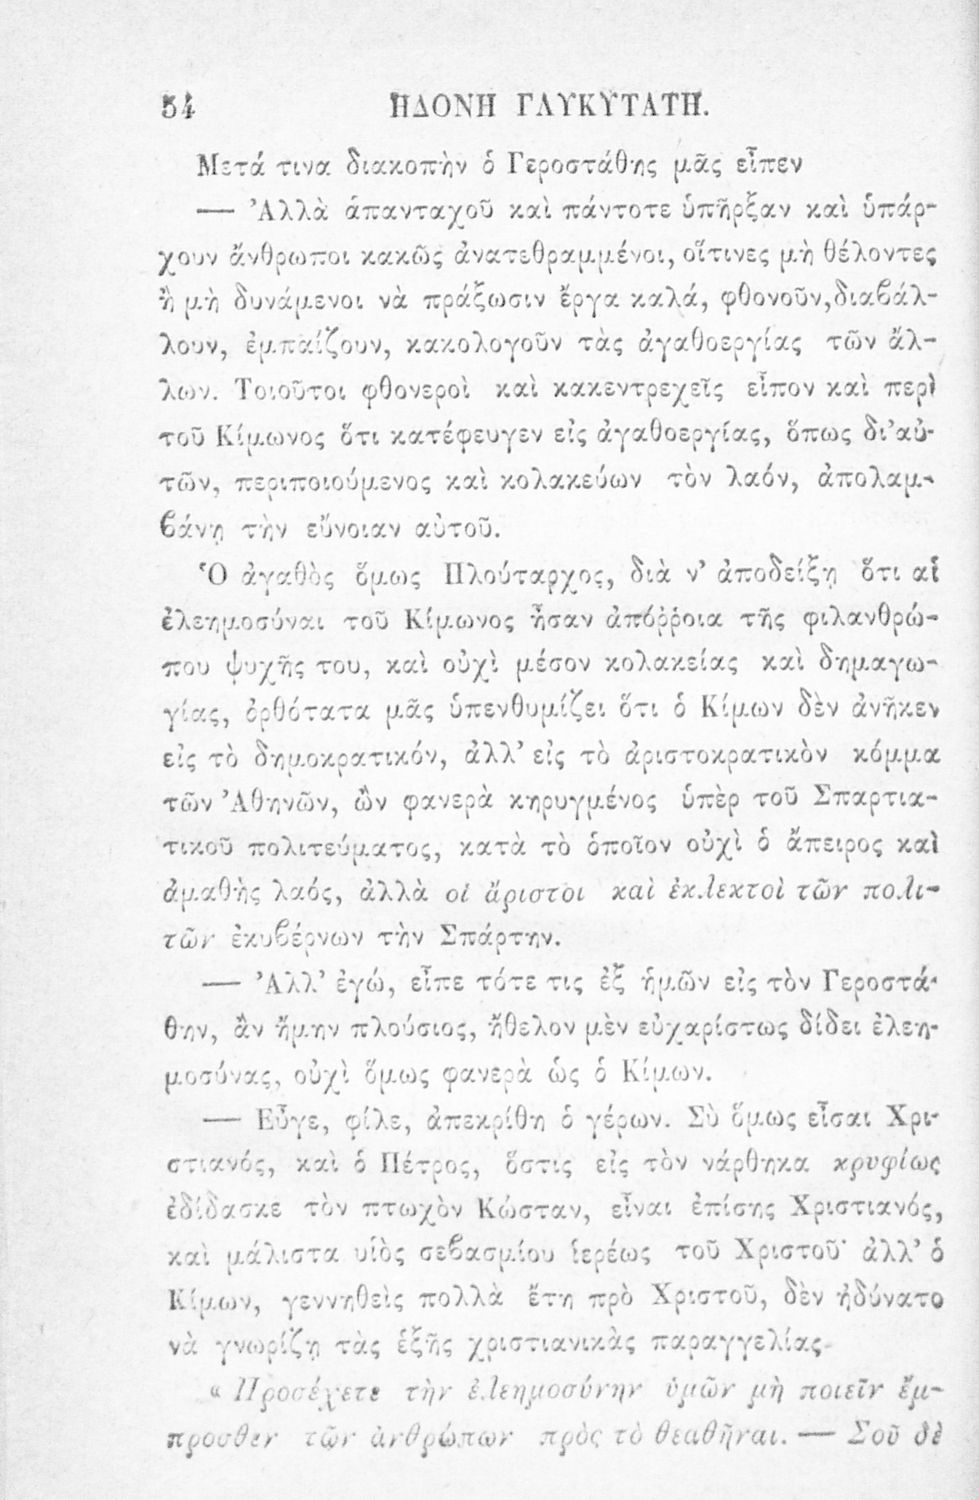 54 ΗΔΟΝΗ ΓΛΥΚΥΤΑΤΗ.
Μετά τινα διακοπὴν ὁ Γεροστάθης μᾶς εἶπεν
— Ἀλλὰ ἁπανταχοῦ καὶ πάντοτε ὑπῆρξαν καὶ ὑπάρ-
χουν ἄνθρωποι κακῶς ἀνατεθραμμένοι, οἵτινες μὴ θέλοντες
ἢ μὴ δυνάμενοι νὰ πράξωσιν ἔργα καλά, φθονοῦν,διαβάλ-
λουν, ἐμπαίζουν, κακολογοῦν τὰς ἀγαθοεργίας τῶν ἄλ-
λων. Τοιοῦτοι φθονεροὶ καὶ κακεντρεχεῖς εἶπον καὶ περὶ
τοῦ Κίμωνος ὅτι κατέφευγεν εἰς ἀγαθοεργίας, ὅπως δι’αὐ-
τῶν, περιποιούμενος καὶ κολακεύων τὸν λαόν, ἀπολαμ-
βάνῃ τὴν εὔνοιαν αὐτοῦ.
Ὁ ἀγαθὸς ὅμως Πλούταρχος, διὰ ν’ ἀποδείξῃ ὅτι αἱ
ἐλεημοσύναι τοῦ Κίμωνος ἦσαν ἀπόῤῥοια τῆς φιλανθρώ-
που ψυχῆς του, καὶ οὐχὶ μέσον κολακείας καὶ δημαγω-
γίας, ὀρθότατα μᾶς ὑπενθυμίζει ὅτι ὁ Κίμων δὲν ἀνῆκεν
εἰς τὸ δημοκρατικόν, ἀλλ’ εἰς τὸ ἀριστοκρατικὸν κόμμα
τῶν Ἀθηνῶν, ὢν φανερὰ κηρυγμένος ὑπὲρ τοῦ Σπαρτια-
τικοῦ πολιτεύματος, κατὰ τὸ ὁποῖον οὐχὶ ὁ ἄπειρος καὶ
ἀμαθὴς λαός, ἀλλὰ οἱ ἄριστοι καὶ ἐκλεκτοὶ τῶν πολι-
τῶν ἐκυβέρνων τὴν Σπάρτην.
— Ἀλλ’ ἐγώ, εἶπε τότε τις ἐξ ἡμῶν εἰς τὸν Γεροστά-
θην, ἂν ἤμην πλούσιος, ἤθελον μὲν εὐχαρίστως δίδει ἐλεη-
μοσύνας, οὐχὶ ὅμως φανερὰ ὡς ὁ Κίμων.
— Εὖγε, φίλε, ἀπεκρίθη ὁ γέρων. Σὺ ὅμως εἶσαι Χρι-
στιανός, καὶ ὁ Πέτρος, ὅστις εἰς τὸν νάρθηκα κρυφίως
ἐδίδασκε τὸν πτωχὸν Κώσταν, εἶναι ἐπίσης Χριστιανός,
καὶ μάλιστα υἱὸς σεβασμίου ἱερέως τοῦ Χριστοῦ· ἀλλ’ ὁ
Κίμων, γεννηθεὶς πολλὰ ἔτη πρὸ Χριστοῦ, δὲν ἠδύνατο
νὰ γνωρίζῃ τὰς ἑξῆς χριστιανικὰς παραγγελίας
« Προσέχετε τὴν ἐλεημοσύνην ὑμῶν μὴ ποιεῖν ἔμ-
προσθεν τῶν ἀνθρώπων πρὸς τὸ θεαθῆναι. — Σοῦ δὲ